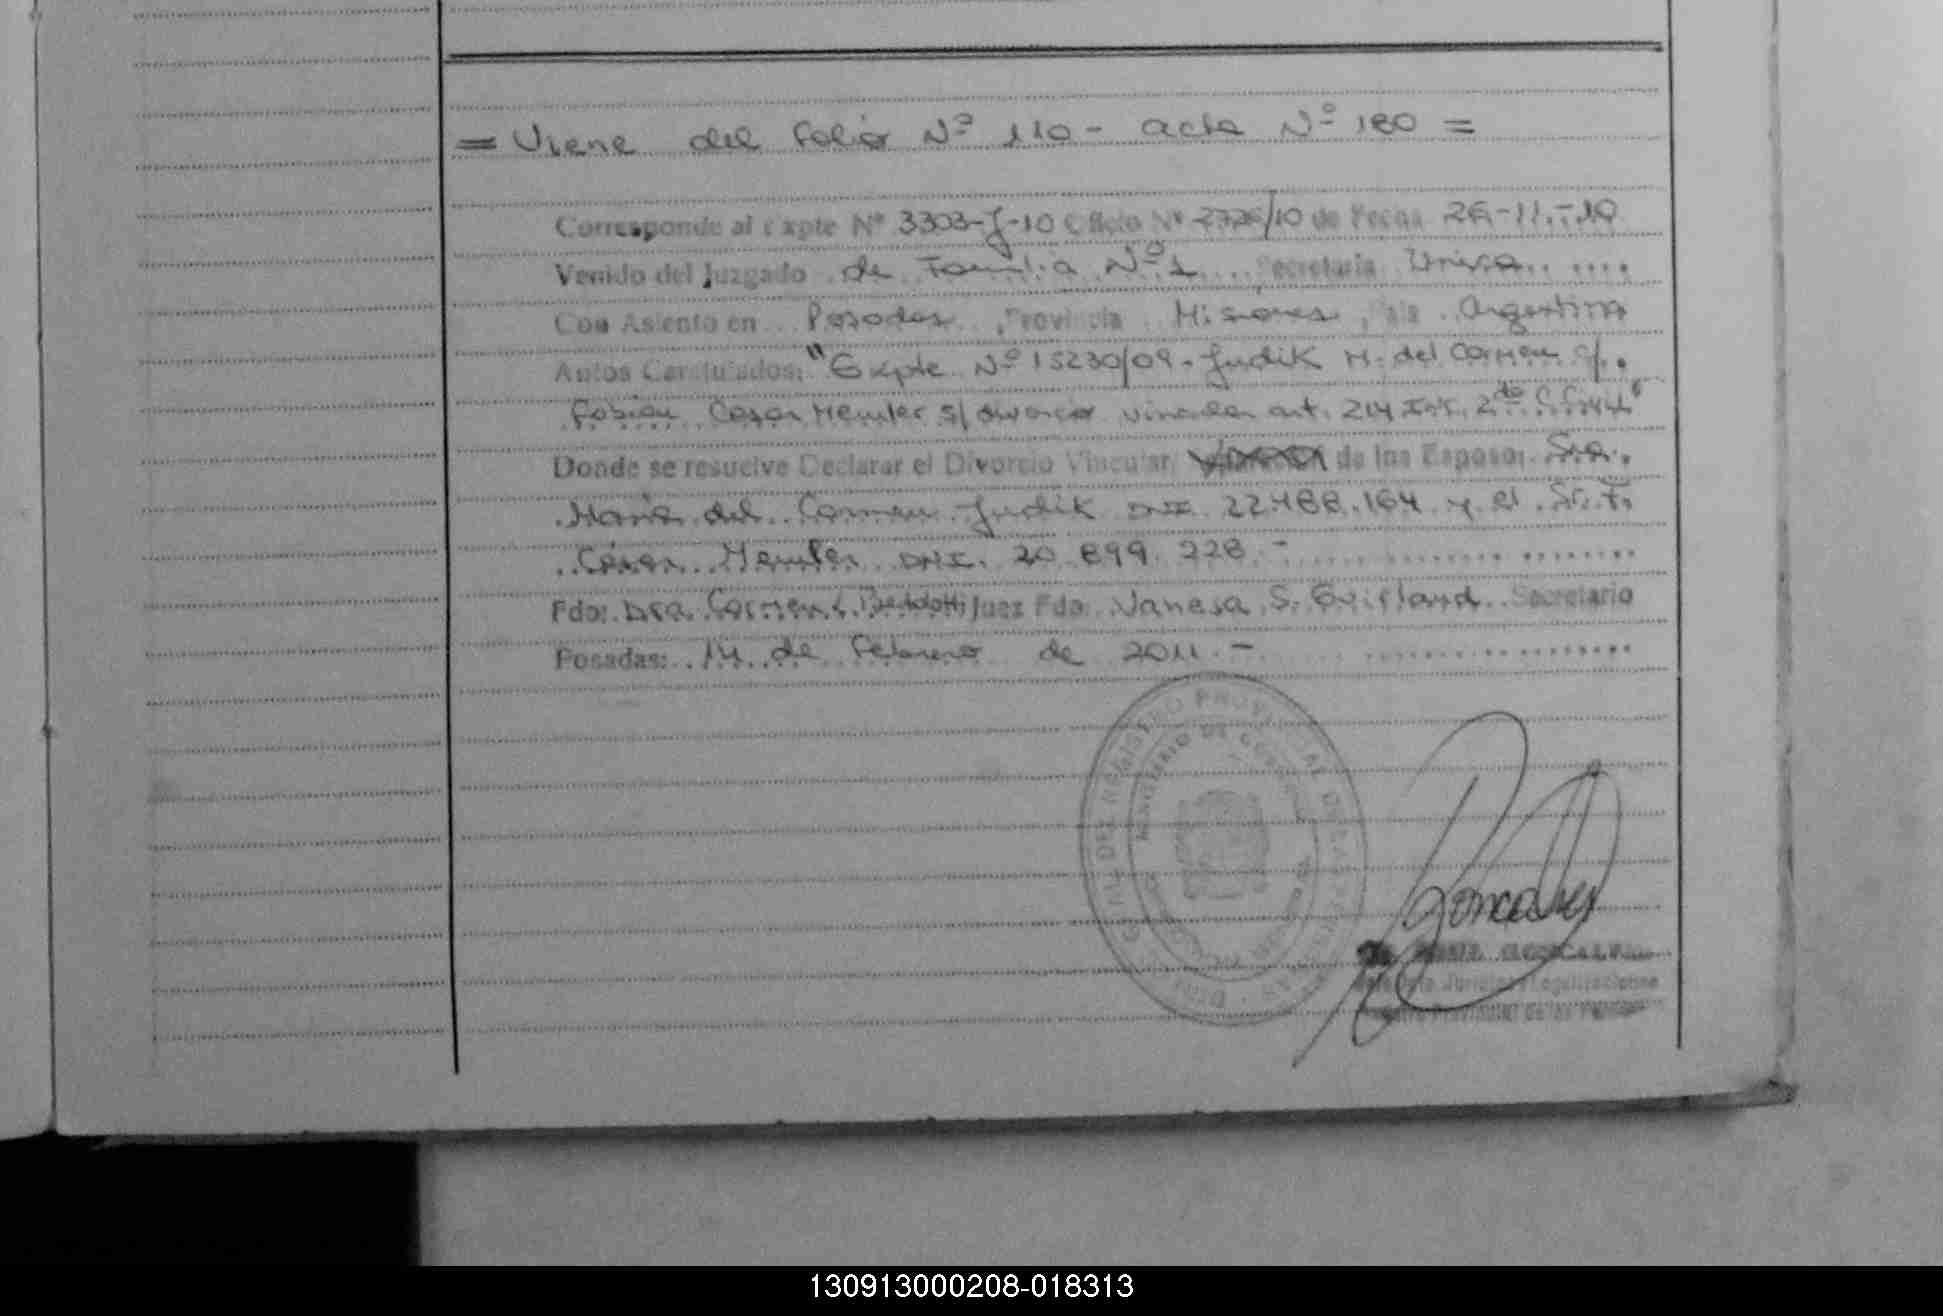 = Viene del folio Nº 110 - acta Nº 180 =
Corresponde al Expte Nº 3303-J-10 Oficio Nº 2726/10 de Fecha 26-11-10
Venido del Juzgado de Familia Nº 1 Secretaria Unica
Con Asiento en Posadas Provincia Misiones, Pais Argentina
Autos Caratulados: "Expte Nº 15230/09 - Judik M. del Carmen c/
Fabian Cesar Hemler s/ divorcio vincular art. 214 Inc. 2do
Donde se resuelve Declarar el Divorcio Vincular, de los Esposos Sra.
Maria del Carmen Judik DNI 22.488.164 y el Sr. F.
César Hemler DNI. 20.899.228.-
Fdo: Dra. Carmen Bertolotti Juez Fdo: Vanesa S. Secretario
Posadas: 14 de Febrero de 2011.-
REGISTRO PROVINCIAL DE LAS PERSONAS
MINISTERIO DE GOBIERNO
Goncalves
GONCALVES
Juridica y Legalizaciones
Registro Provincial de las Personas
130913000208-018313